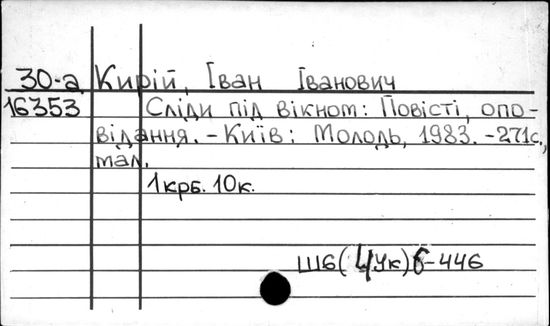 30-а Кирій, Іван Іванович
16353 Сліди під вікном: Повісті, опо-
відання. - Київ: Молодь, 1983. - 271с.,
мал.
1 крб. 10к.
Ш6(4Ук)6-446